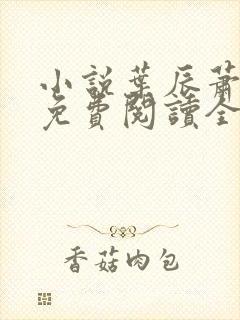 小說葉辰蕭
免費閱讀全
香菇肉包